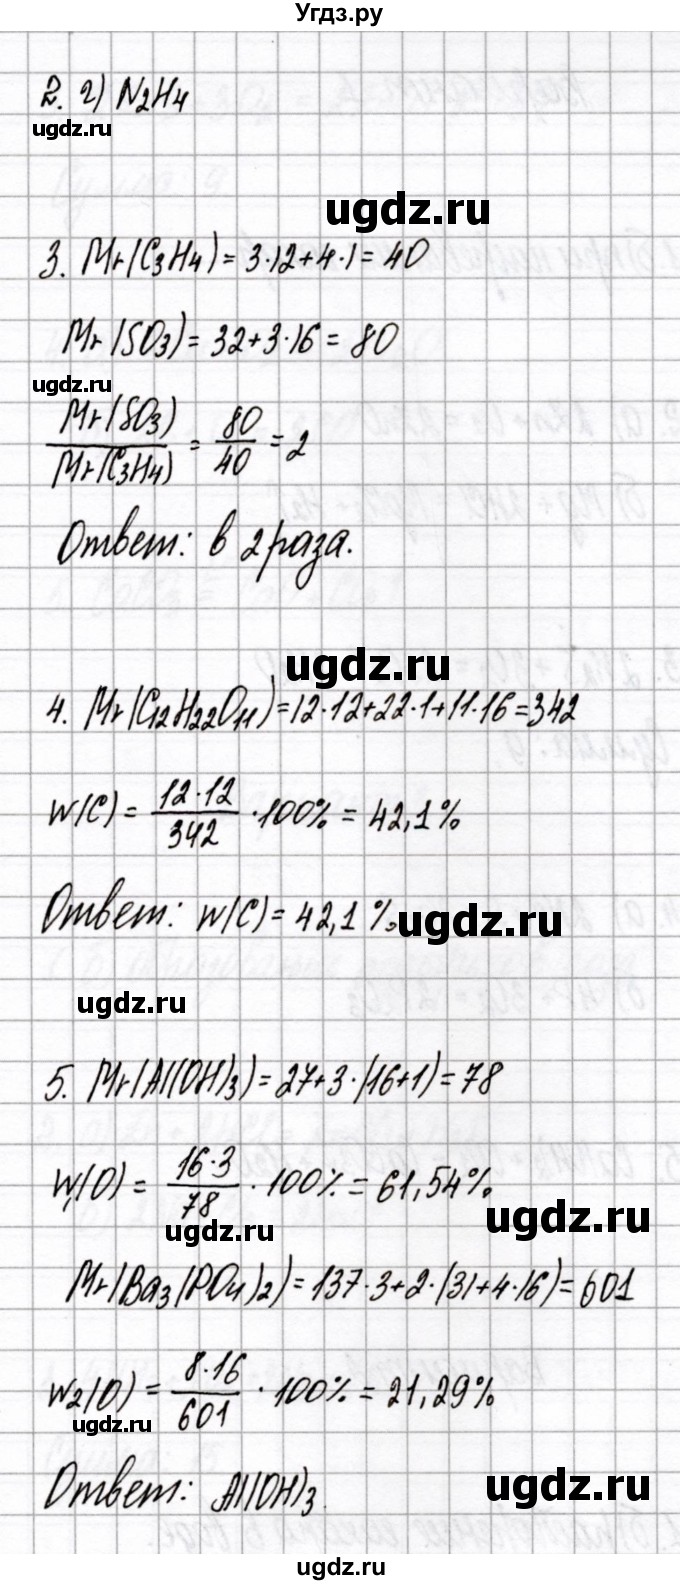 Угдз.ру
2. г) N₂H₄
ugdz.ru
ugdz.ru
3. Mr(C₃H₄) = 3·12+4·1 = 40
Mr(SO₃) = 32+3·16 = 80
ugdz.ru
Mr(SO₃)/Mr(C₃H₄) = 80/40 = 2
Ответ: в 2 раза.
ugdz.ru
4. Mr(C₁₂H₂₂O₁₁) = 12·12+22·1+11·16 = 342
W(C) = 12·12/342 · 100% = 42,1%
Ответ: W(C) = 42,1%
ugdz.ru
ugdz.ru
5. Mr(Al(OH)₃) = 27+3·(16+1) = 78
W₁(O) = 16·3/78 · 100% = 61,54%
ugdz.ru
ugdz.ru
Mr(Ba₃(PO₄)₂) = 137·3+2·(31+4·16) = 601
W₂(O) = 8·16/601 · 100% = 21,29%
ugdz.ru
Ответ: Al(OH)₃.
ugdz.ru
ugdz.ru